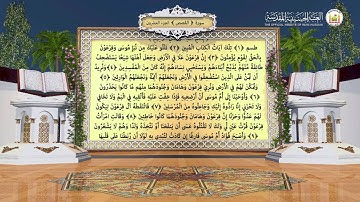 سورة ( القصص ) الجزء العشرين
العتبة الحسينية المقدسة
THE OFFICIAL WEBSITE OF IMAM HUSSAIN
طسم (١) تِلْكَ آيَاتُ الْكِتَابِ الْمُبِينِ (٢) نَتْلُو عَلَيْكَ مِنْ نَبَإِ مُوسَى وَفِرْعَوْنَ
بِالْحَقِّ لِقَوْمٍ يُؤْمِنُونَ (٣) إِنَّ فِرْعَوْنَ عَلَا فِي الْأَرْضِ وَجَعَلَ أَهْلَهَا شِيَعًا يَسْتَضْعِفُ
طَائِفَةً مِنْهُمْ يُذَبِّحُ أَبْنَاءَهُمْ وَيَسْتَحْيِي نِسَاءَهُمْ إِنَّهُ كَانَ مِنَ الْمُفْسِدِينَ (٤) وَنُرِيدُ
أَنْ نَمُنَّ عَلَى الَّذِينَ اسْتُضْعِفُوا فِي الْأَرْضِ وَنَجْعَلَهُمْ أَئِمَّةً وَنَجْعَلَهُمُ الْوَارِثِينَ (٥)
وَنُمَكِّنَ لَهُمْ فِي الْأَرْضِ وَنُرِيَ فِرْعَوْنَ وَهَامَانَ وَجُنُودَهُمَا مِنْهُمْ مَا كَانُوا يَحْذَرُونَ
(٦) وَأَوْحَيْنَا إِلَى أُمِّ مُوسَى أَنْ أَرْضِعِيهِ فَإِذَا خِفْتِ عَلَيْهِ فَأَلْقِيهِ فِي الْيَمِّ وَلَا تَخَافِي
وَلَا تَحْزَنِي إِنَّا رَادُّوهُ إِلَيْكِ وَجَاعِلُوهُ مِنَ الْمُرْسَلِينَ (٧) فَالْتَقَطَهُ آلُ فِرْعَوْنَ لِيَكُونَ
لَهُمْ عَدُوًّا وَحَزَنًا إِنَّ فِرْعَوْنَ وَهَامَانَ وَجُنُودَهُمَا كَانُوا خَاطِئِينَ (٨) وَقَالَتِ امْرَأَتُ
فِرْعَوْنَ قُرَّتُ عَيْنٍ لِي وَلَكَ لَا تَقْتُلُوهُ عَسَى أَنْ يَنْفَعَنَا أَوْ نَتَّخِذَهُ وَلَدًا وَهُمْ لَا يَشْعُرُونَ
(٩) وَأَصْبَحَ فُؤَادُ أُمِّ مُوسَى فَارِغًا إِنْ كَادَتْ لَتُبْدِي بِهِ لَوْلَا أَنْ رَبَطْنَا عَلَى قَلْبِهَا